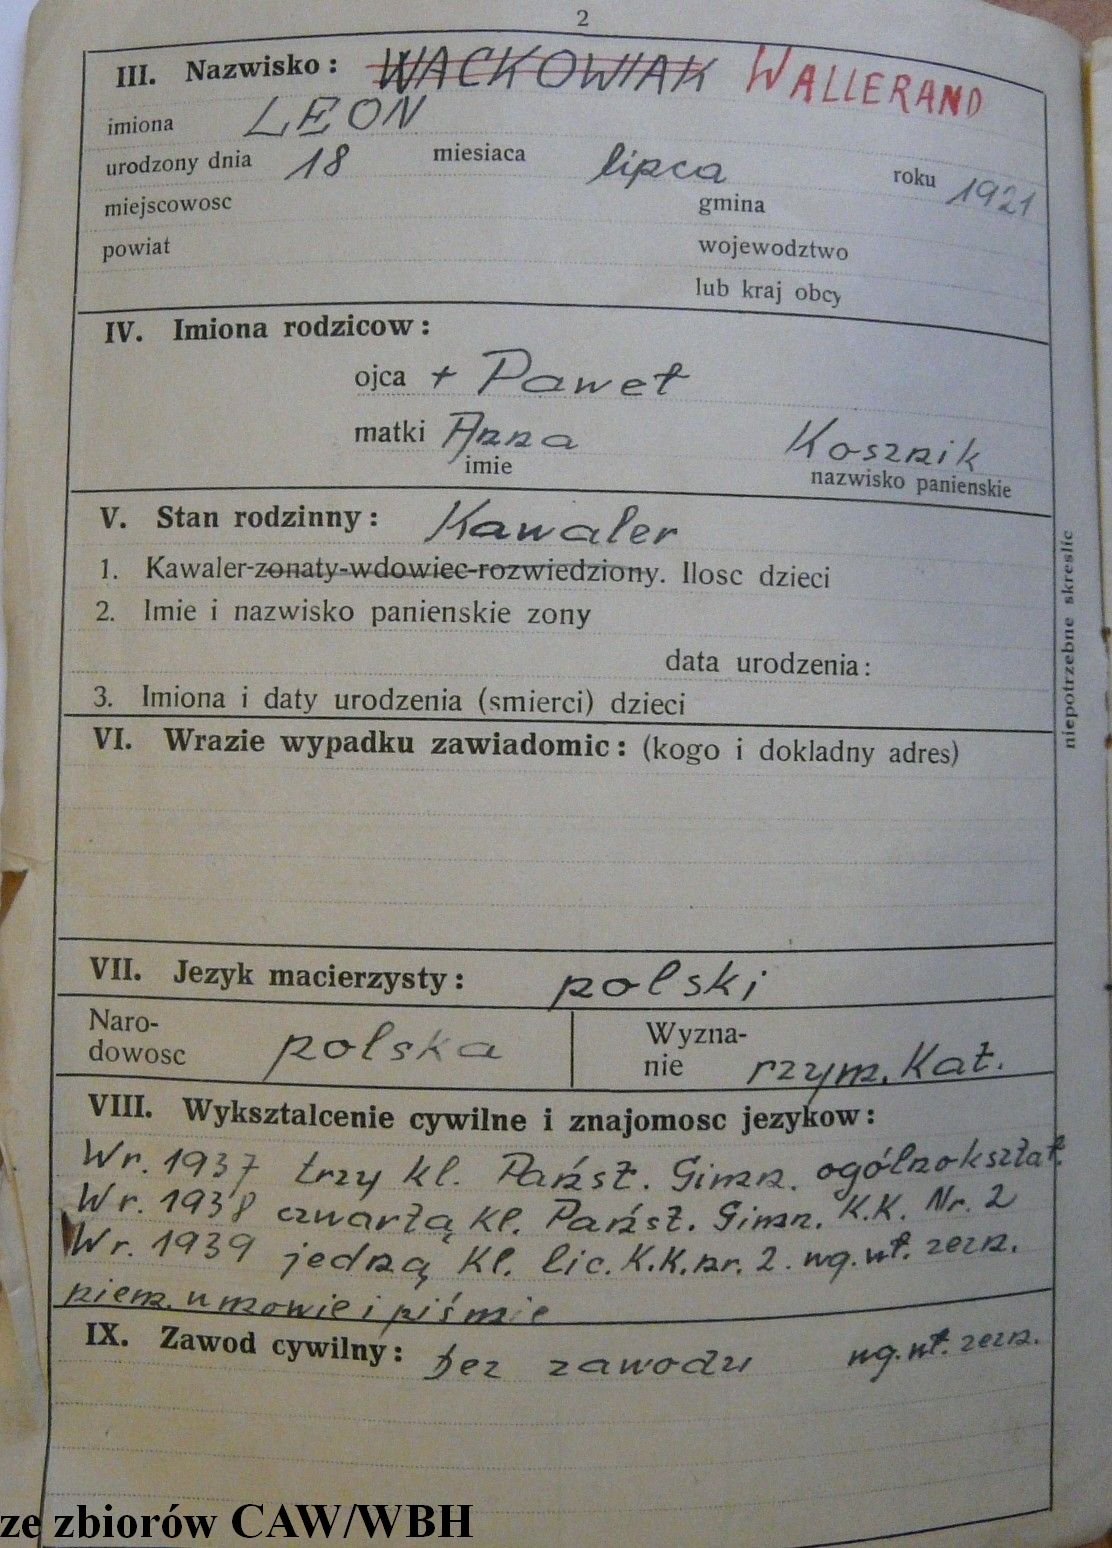 2
III. Nazwisko: WACKOWIAK WALLERAND
imiona LEON
urodzony dnia 18 miesiaca lipca roku 1921
miejscowosc gmina
powiat wojewodztwo
lub kraj obcy
IV. Imiona rodzicow:
ojca + Paweł
matki Anna Kosznik
imie nazwisko panienskie
V. Stan rodzinny: Kawaler
1. Kawaler-zonaty-wdowiec-rozwiedziony. Ilosc dzieci
2. Imie i nazwisko panienskie zony
data urodzenia:
3. Imiona i daty urodzenia (smierci) dzieci
niepotrzebne skreslic
VI. Wrazie wypadku zawiadomic: (kogo i dokladny adres)
VII. Jezyk macierzysty: polski
Naro-
dowosc polska
Wyzna-
nie rzym. Kat.
VIII. Wyksztalcenie cywilne i znajomosc jezykow:
W r. 1937 trzy kl. Państ. Gimn. ogólnokształ.
W r. 1938 czwartą Kl. Państ. Gimn. K.K. Nr. 2
W r. 1939 jedną Kl. lic. K.K. nr. 2. wg. wł. zezn.
niem. w mowie i piśmie
IX. Zawod cywilny: bez zawodu wg. wł. zezn.
ze zbiorów CAW/WBH